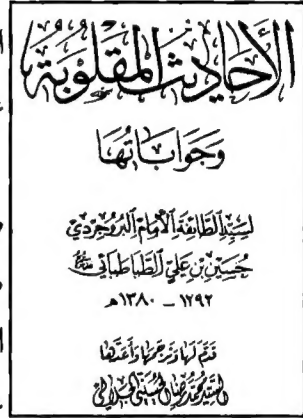 الأحاديث المقلوبة
وجواباتها
لسيد الطائفة الإمام البروجردي
حسين بن علي الطباطبائي
١٢٩٢ - ١٣٨٠ هـ
قدم لها وترجمها وأعدها
السيد محمد رضا الحسيني الجلالي